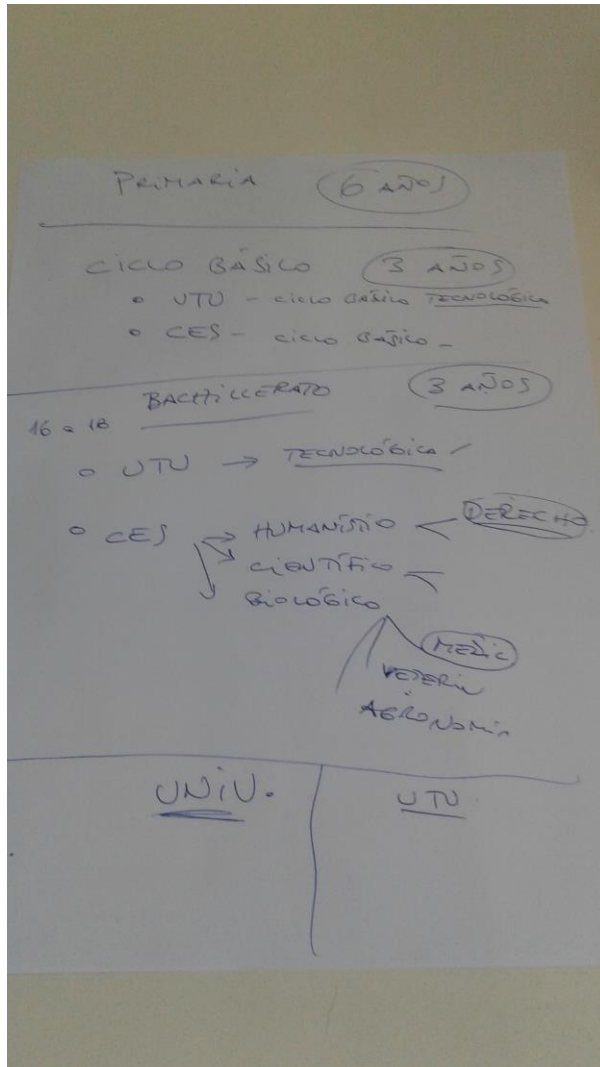 PRIMARIA 6 AÑOS
CICLO BÁSICO 3 AÑOS
o UTU - CICLO BÁSICO TECNOLÓGICO
o CES - CICLO BÁSICO -
BACHILLERATO 3 AÑOS
16 a 18
o UTU → TECNOLÓGICA
o CES → HUMANÍSTIO < DERECHO
CIENTÍFICO <
BIOLÓGICO
MEDIC
VETERIN
AGRONOMIA
UNIV. UTU